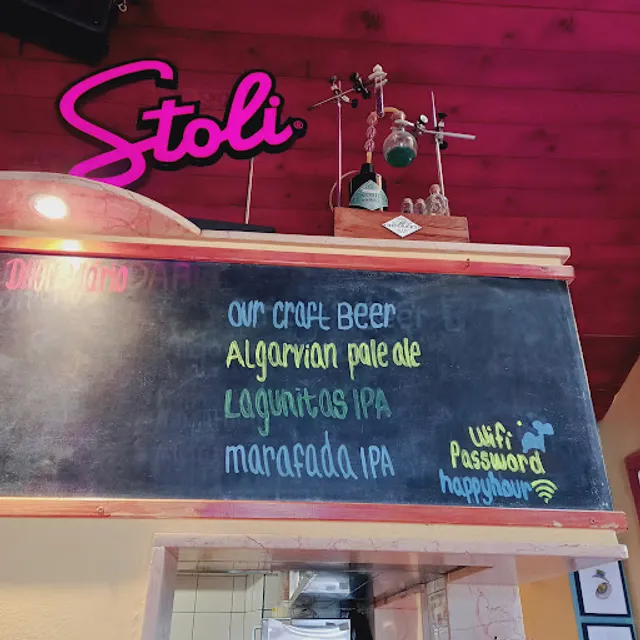 Stoli®
our craft Beer
Algarvian pale ale
Lagunitas IPA
marafada IPA
Wifi
Password
happyhour